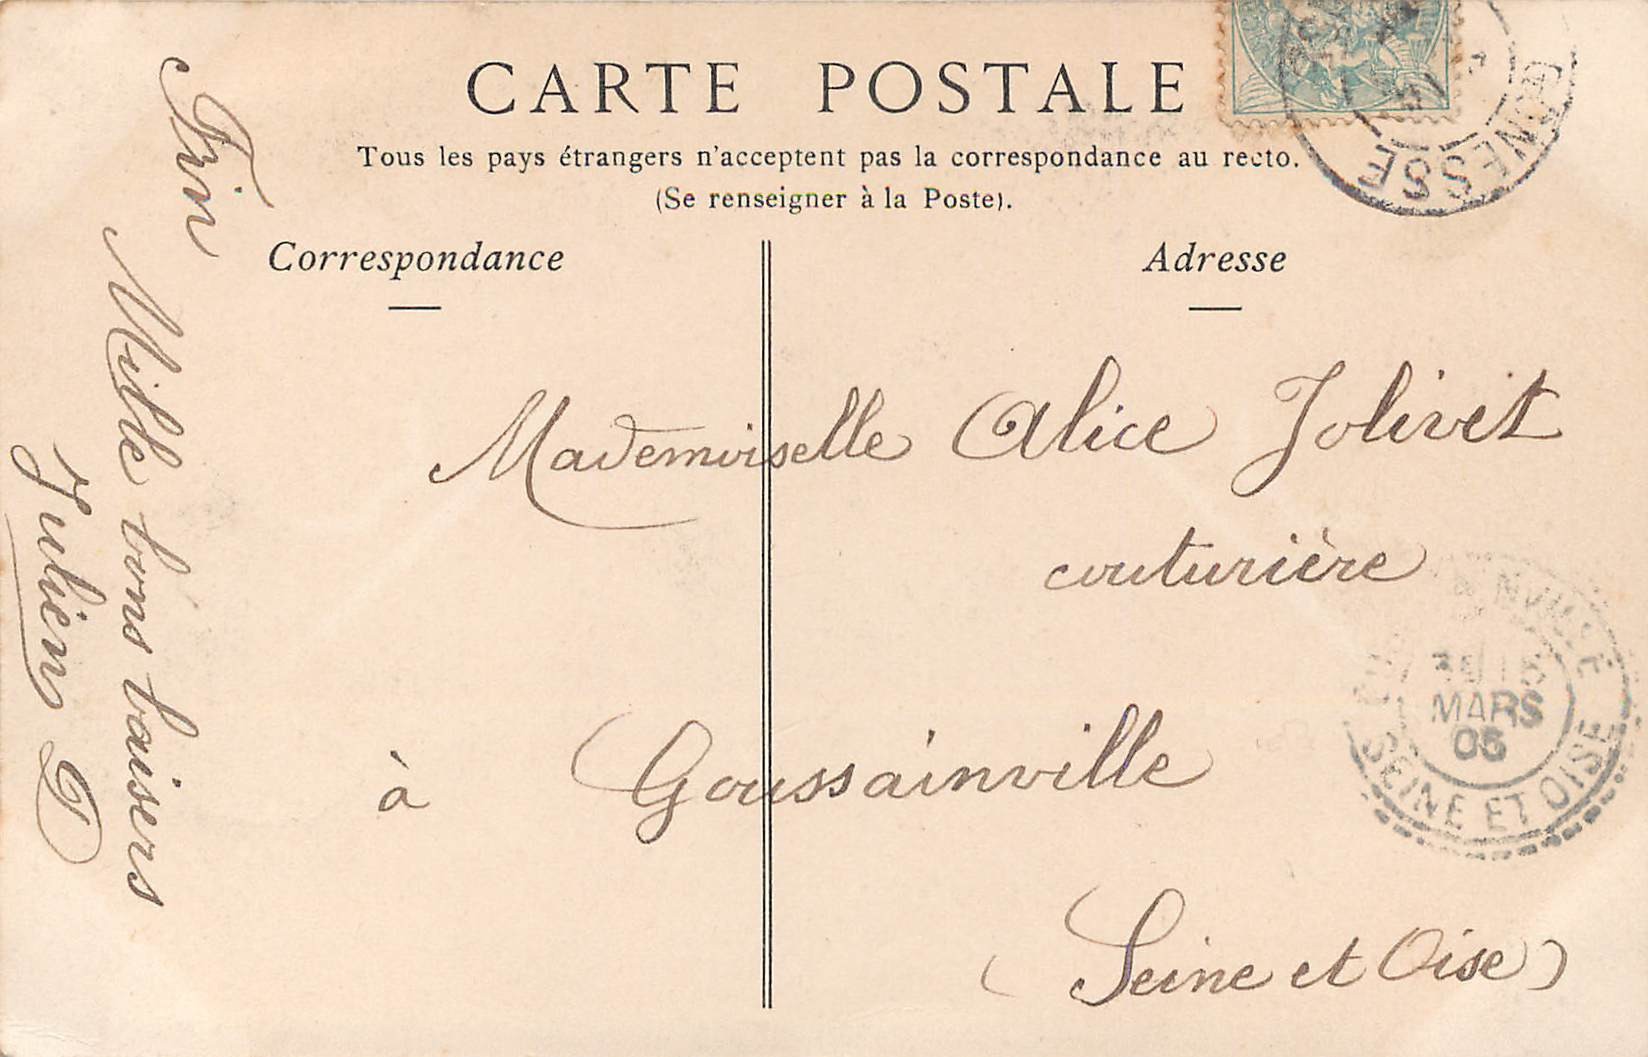 CARTE POSTALE
Tous les pays étrangers n'acceptent pas la correspondance au recto.
(Se renseigner à la Poste).
Correspondance
Adresse
Fin
Mille bons baisers
Julien D
Mademoiselle Alice Jolivet
couturière
à Goussainville
(Seine et Oise)
GONESSE
MARS
05
SEINE ET OISE